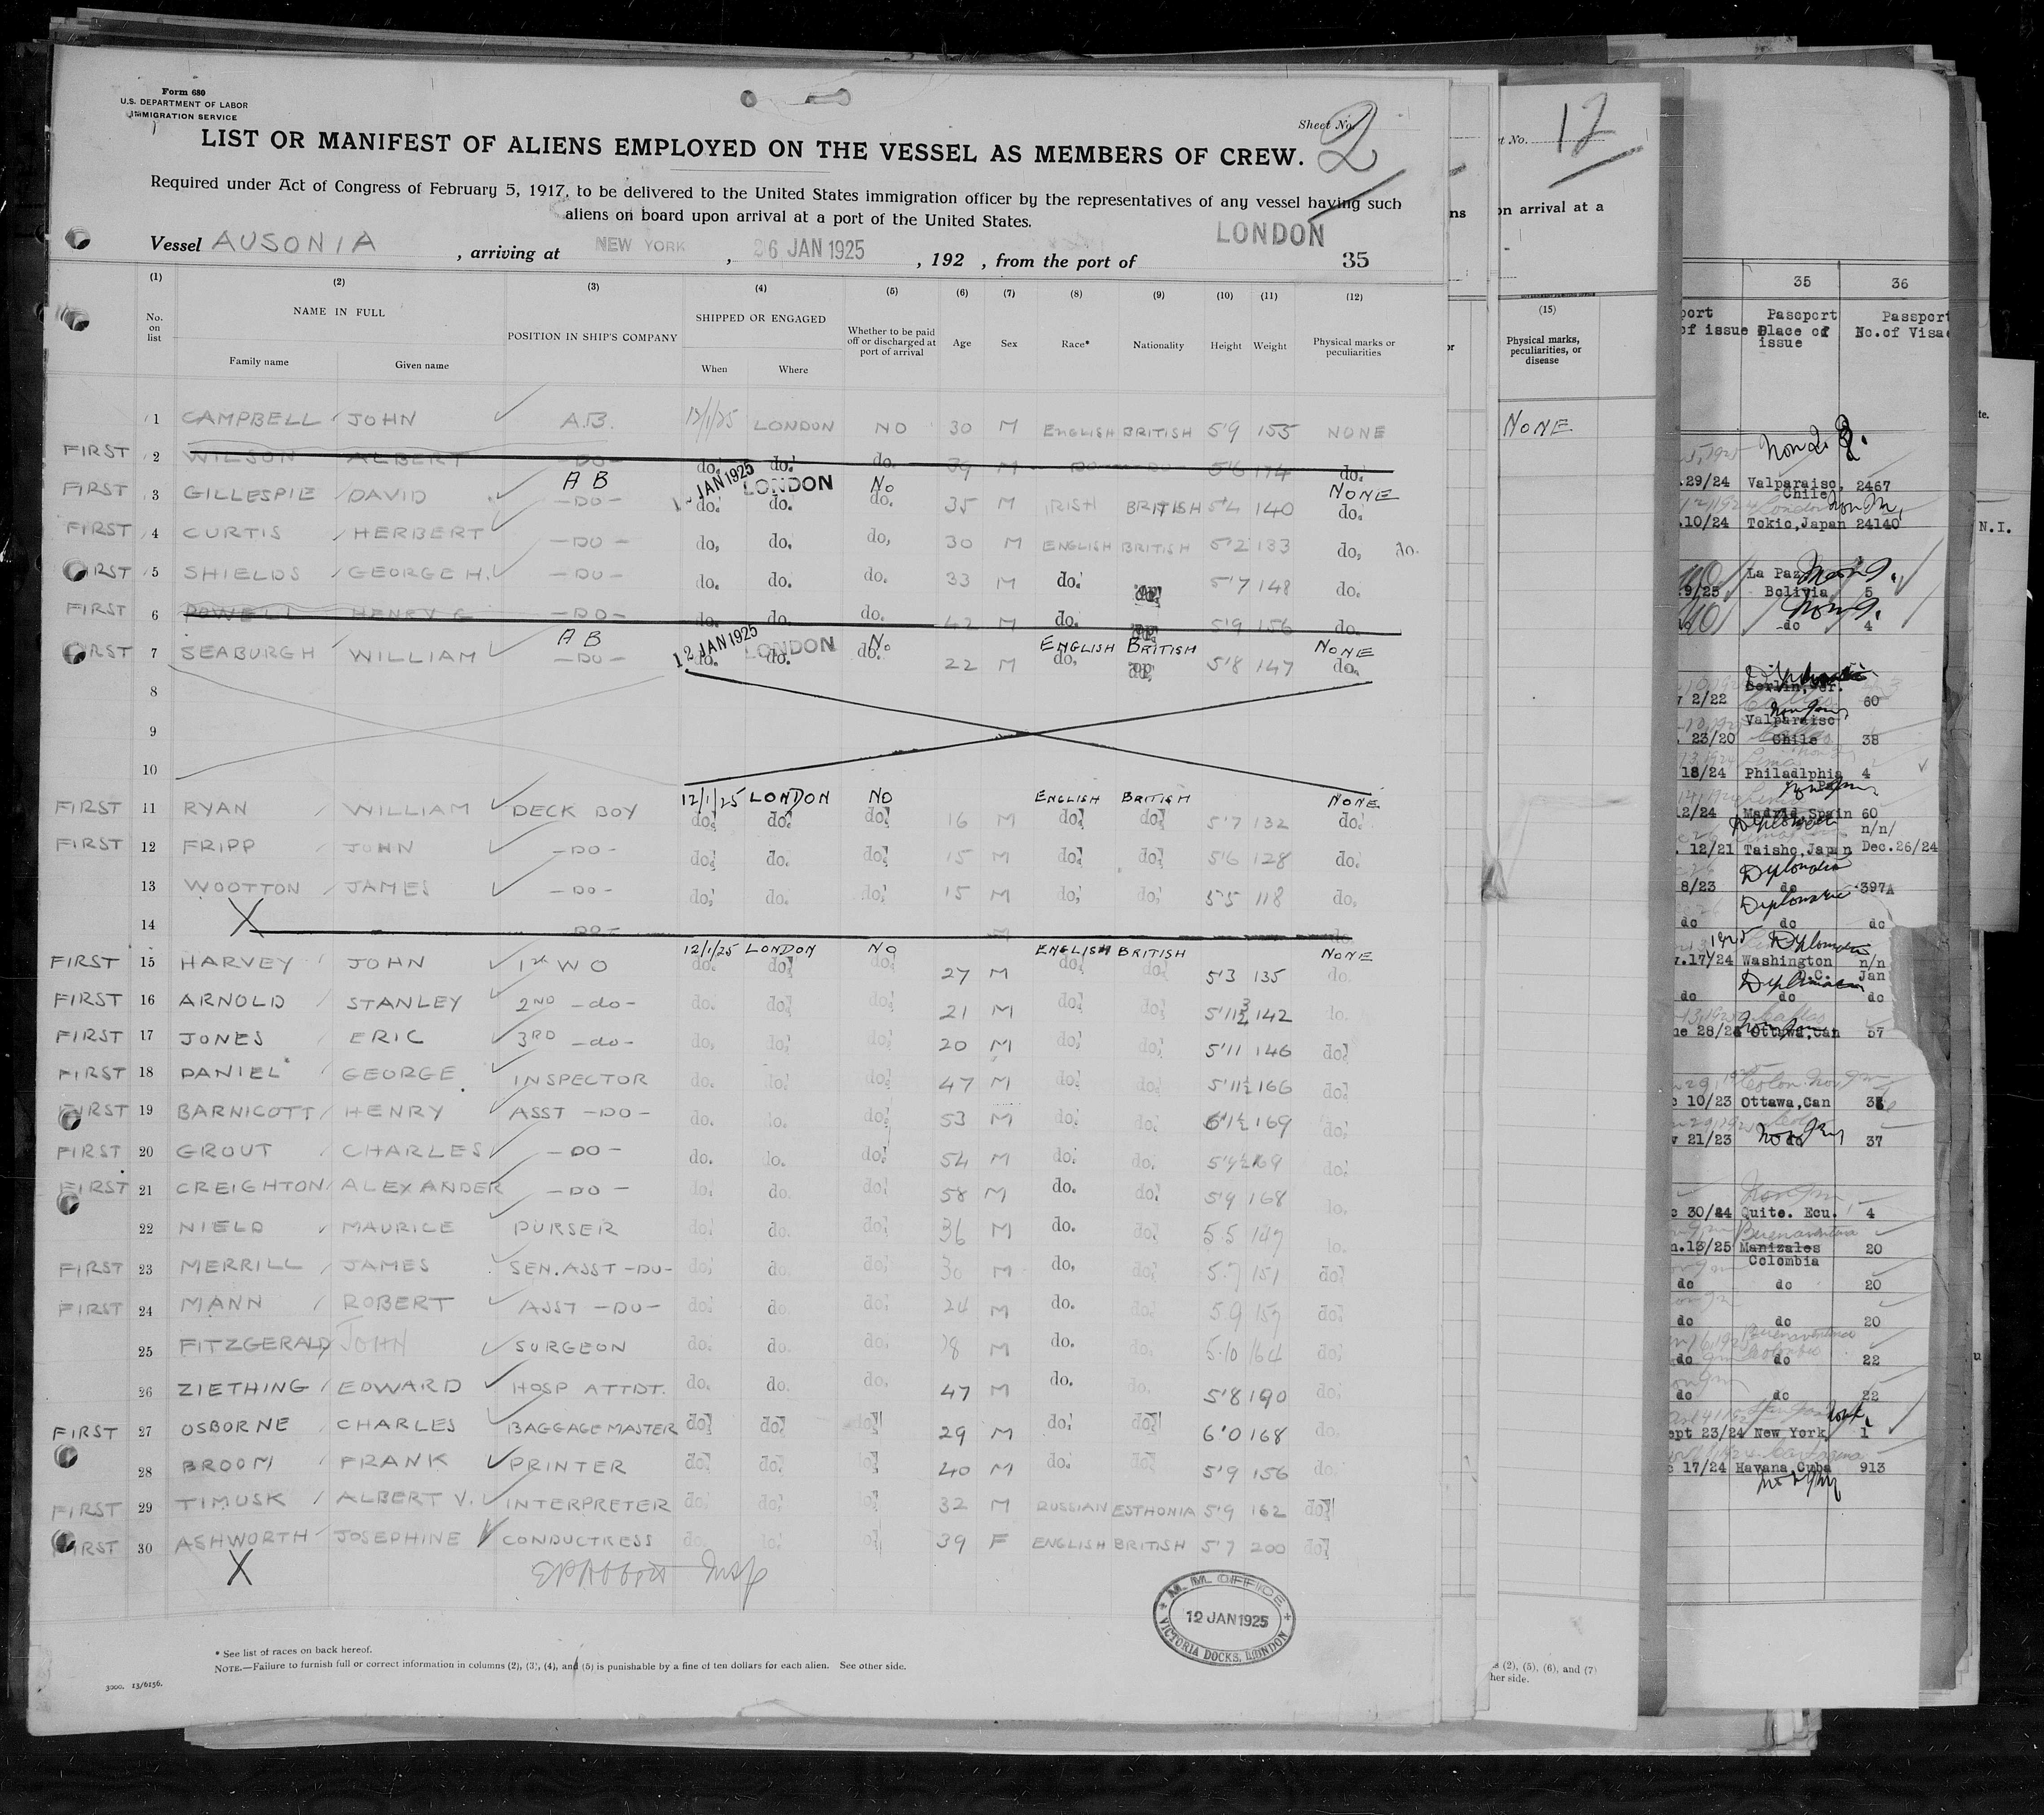 Form 680
U.S. DEPARTMENT OF LABOR
IMMIGRATION SERVICE
Sheet No. 2
LIST OR MANIFEST OF ALIENS EMPLOYED ON THE VESSEL AS MEMBERS OF CREW.
Required under Act of Congress of February 5, 1917, to be delivered to the United States immigration officer by the representatives of any vessel having such
aliens on board upon arrival at a port of the United States.
Vessel AUSONIA, arriving at NEW YORK, 26 JAN 1925, 192 , from the port of LONDON 35
(1) (2) (3) (4) (5) (6) (7) (8) (9) (10) (11) (12)
No. on list NAME IN FULL POSITION IN SHIP'S COMPANY SHIPPED OR ENGAGED Whether to be paid off or discharged at port of arrival Age Sex Race* Nationality Height Weight Physical marks or peculiarities
Family name Given name When Where
1 CAMPBELL JOHN A.B. 12/1/25 LONDON NO 30 M ENGLISH BRITISH 5'9 155 NONE
FIRST 2 WILSON ALBERT -DO- do. do. do. 39 M DO DO 5'6 174 do.
A B 12 JAN 1925 LONDON No NONE
FIRST 3 GILLESPIE DAVID -DO- do. do. do. 35 M IRISH BRITISH 5'4 140 do.
FIRST 4 CURTIS HERBERT -DO- do. do. do. 30 M ENGLISH BRITISH 5'2 133 do. do.
FIRST 5 SHIELDS GEORGE H. -DO- do. do. do. 33 M do. do. 5'7 148 do.
FIRST 6 POWELL HENRY G -DO- do. do. do. 42 M do. do. 5'9 156 do.
A B 12 JAN 1925 LONDON No ENGLISH BRITISH NONE
FIRST 7 SEABURGH WILLIAM -DO- do. do. do. 22 M do. do. 5'8 147 do.
8
9
10
12/1/25 LONDON NO ENGLISH BRITISH NONE
FIRST 11 RYAN WILLIAM DECK BOY do. do. do. 16 M do. do. 5'7 132 do.
FIRST 12 FRIPP JOHN -DO- do. do. do. 15 M do. do. 5'6 128 do.
13 WOOTTON JAMES -DO- do. do. do. 15 M do. do. 5'5 118 do.
14 X -DO- M do.
12/1/25 LONDON NO ENGLISH BRITISH NONE
FIRST 15 HARVEY JOHN 1st W O do. do. do. 27 M do. do. 5'3 135 do.
FIRST 16 ARNOLD STANLEY 2ND -do- do. do. do. 21 M do. do. 5'11¾ 142 do.
FIRST 17 JONES ERIC 3RD -do- do. do. do. 20 M do. do. 5'11 146 do.
FIRST 18 DANIEL GEORGE INSPECTOR do. do. do. 47 M do. do. 5'11½ 166 do.
FIRST 19 BARNICOTT HENRY ASST -DO- do. do. do. 53 M do. do. 6'1½ 169 do.
FIRST 20 GROUT CHARLES -DO- do. do. do. 54 M do. do. 5'9½ 169 do.
FIRST 21 CREIGHTON ALEXANDER -DO- do. do. do. 58 M do. do. 5'9 168 do.
22 NIELD MAURICE PURSER do. do. do. 36 M do. do. 5.5 147 do.
FIRST 23 MERRILL JAMES SEN. ASST -DO- do. do. do. 30 M do. do. 5.7 151 do.
FIRST 24 MANN ROBERT ASST -DO- do. do. do. 24 M do. do. 5.9 157 do.
25 FITZGERALD JOHN SURGEON do. do. do. M do. do. 5.10 164 do.
26 ZIETHING EDWARD HOSP ATTDT. do. do. do. 47 M do. do. 5'8 190 do.
FIRST 27 OSBORNE CHARLES BAGGAGE MASTER do. do. do. 29 M do. do. 6'0 168 do.
28 BROOM FRANK PRINTER do. do. do. 40 M do. do. 5'9 156 do.
FIRST 29 TIMUSK ALBERT V. INTERPRETER do. do. do. 32 M RUSSIAN ESTHONIA 5'9 162 do.
FIRST 30 ASHWORTH JOSEPHINE CONDUCTRESS do. do. do. 39 F ENGLISH BRITISH 5'7 200 do.
X
Insp
M. M. OFFICE
12 JAN 1925
VICTORIA DOCKS, LONDON
* See list of races on back hereof.
NOTE.—Failure to furnish full or correct information in columns (2), (3), (4), and (5) is punishable by a fine of ten dollars for each alien. See other side.
3000. 13/6156.
t No. 12
on arrival at a
(15)
Physical marks, peculiarities, or disease
NONE
(2), (5), (6), and (7)
her side.
35 36
port of issue Passport Place of issue Passport No. of Visa
.29/24 Valparaiso, Chile 2467
.10/24 Tokio, Japan 24140
N.I.
9/25 La Paz Bolivia 5
do 4
2/22 Berlin, Ger. 60
23/20 Valparaiso Chile 38
18/24 Philadlphia 4
2/24 Madrid, Spain 60
12/21 Taisho, Japan n/n/ Dec. 26/24
Diplomatic
8/23 do 397A
Diplomatic
do do do
.17/24 Washington D.C. n/n Jan
do do do
ne 28/24 Ottawa, Can 57
10/23 Ottawa, Can
21/23 37
30/24 Quito. Ecu. 4
n.13/25 Manizales Colombia 20
Buenaventura
do do 20
do do 20
do do 22
do do 22
ept 23/24 New York 1
17/24 Havana, Cuba 913